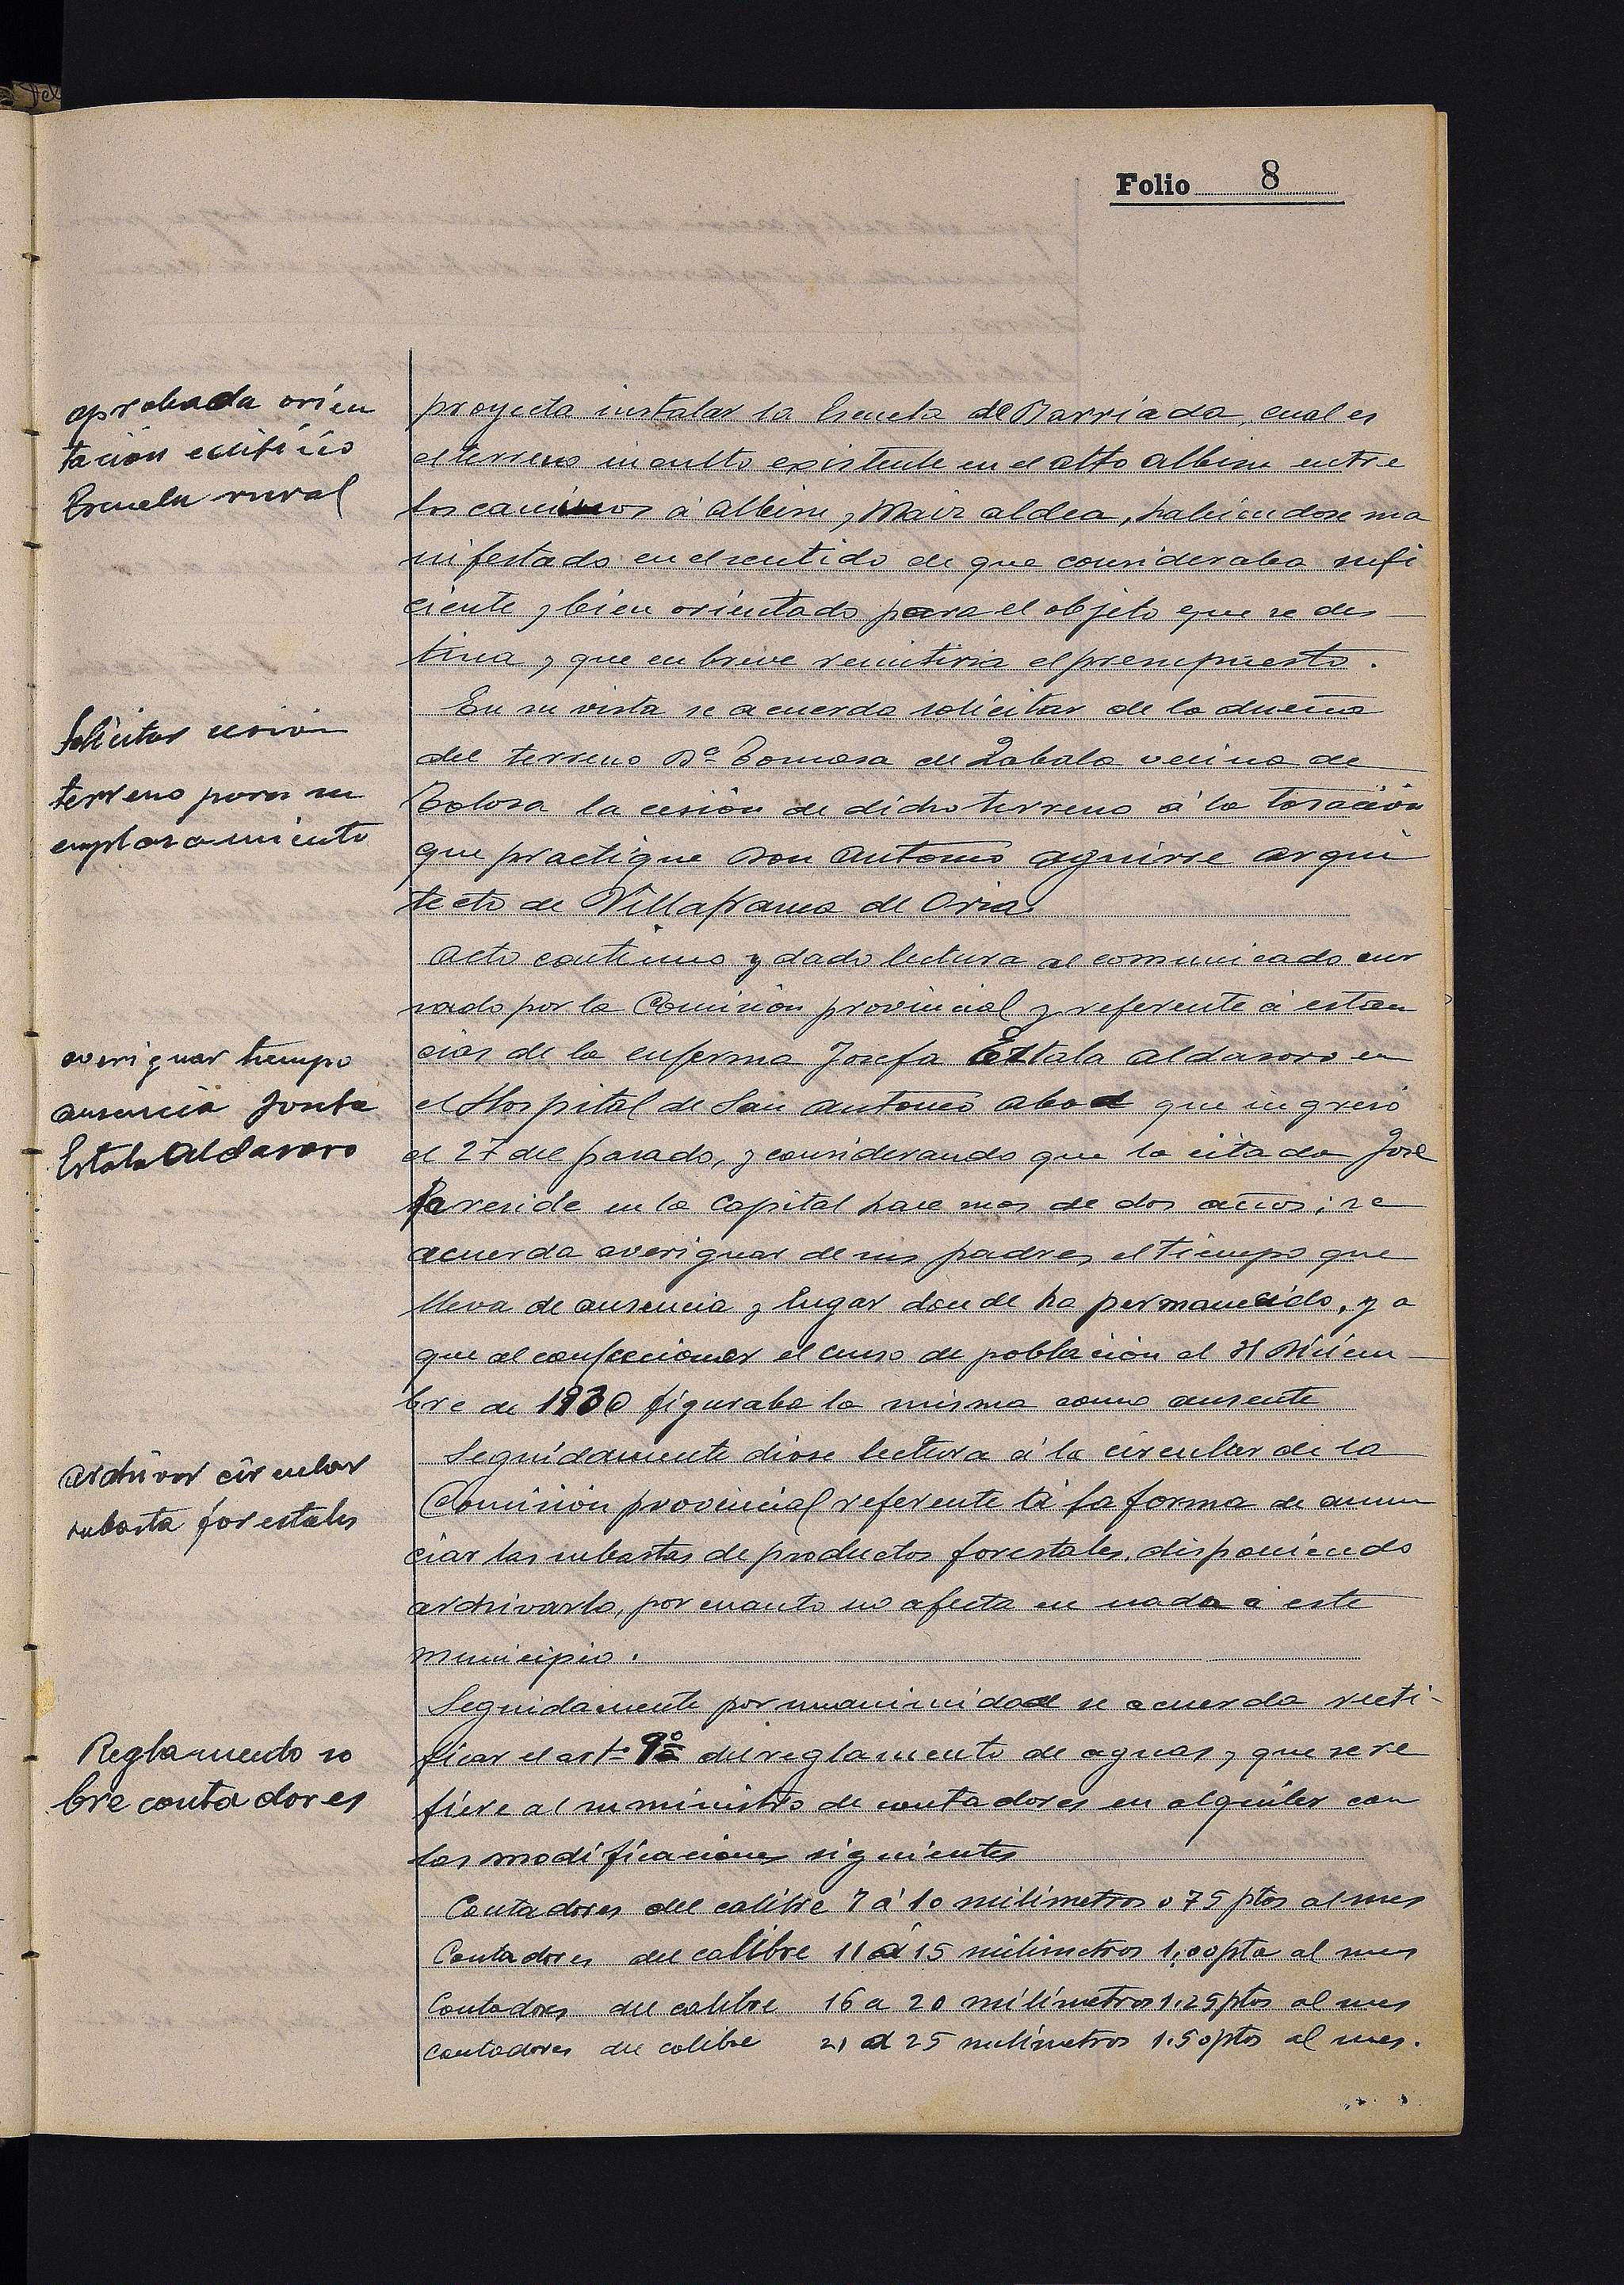 Folio 8
aprobada orien
tación edificio
Escuela rural
proyecta instalar la Escuela de Barriada, cual es
el terreno inculto existente en el alto Albisu entre
los caminos á Albisu y Mairaldea, habiendose ma
nifestado en el sentido de que consideraba sufi
ciente y bien orientado para el objeto que se des
tina y que en breve remitiria el presupuesto.
Solicitar cesion
terreno para su
emplasamiento
En su vista se acuerda solicitar de la dueña
del terreno Dª Tomasa de Zabala vecina de
Tolosa la cesión de dicho terreno á la tasación
que practique Don Antonio Aguirre arqui
tecto de Villafranca de Oria.
averiguar tiempo
ausencia Josefa
Estala Aldasoro
Acto continuo y dado lectura al comunicado cur
sado por la Comisión provincial y referente á estan
cias de la enferma Josefa Estala Aldasoro en
el Hospital de San Antonio Abad que ingresó
el 27 del pasado, y considerando que la citada Jose
fa reside en la Capital hace mas de dos años; se
acuerda averiguar de sus padres el tiempo que
lleva de ausencia y lugar donde ha permanecido, ya
que al confeccionar el censo de población al 31 Diciem
bre de 1930 figuraba la misma como ausente
Archivar circular
subasta forestales
Seguidamente dióse lectura á la circular de la
Comisión provincial referente á la forma de anun
ciar las subastas de productos forestales, disponiendo
archivarla, por cuanto no afecta en nada á este
municipio.
Reglamento so
bre contadores
Seguidamente por unanimidad se acuerda recti-
ficar el artº 9º del reglamento de aguas y que se re
fiere al suministro de contadores en alquiler con
las modificaciones siguientes
Contadores del calibre 7 á 10 milimetros 0 75 ptas al mes
Contadores del calibre 11 á 15 milimetros 1,00 pta al mes
Contadores del calibre 16 a 20 milímetros 1.25 ptas al mes
contadores del calibre 21 á 25 milímetros 1.50 ptas al mes.